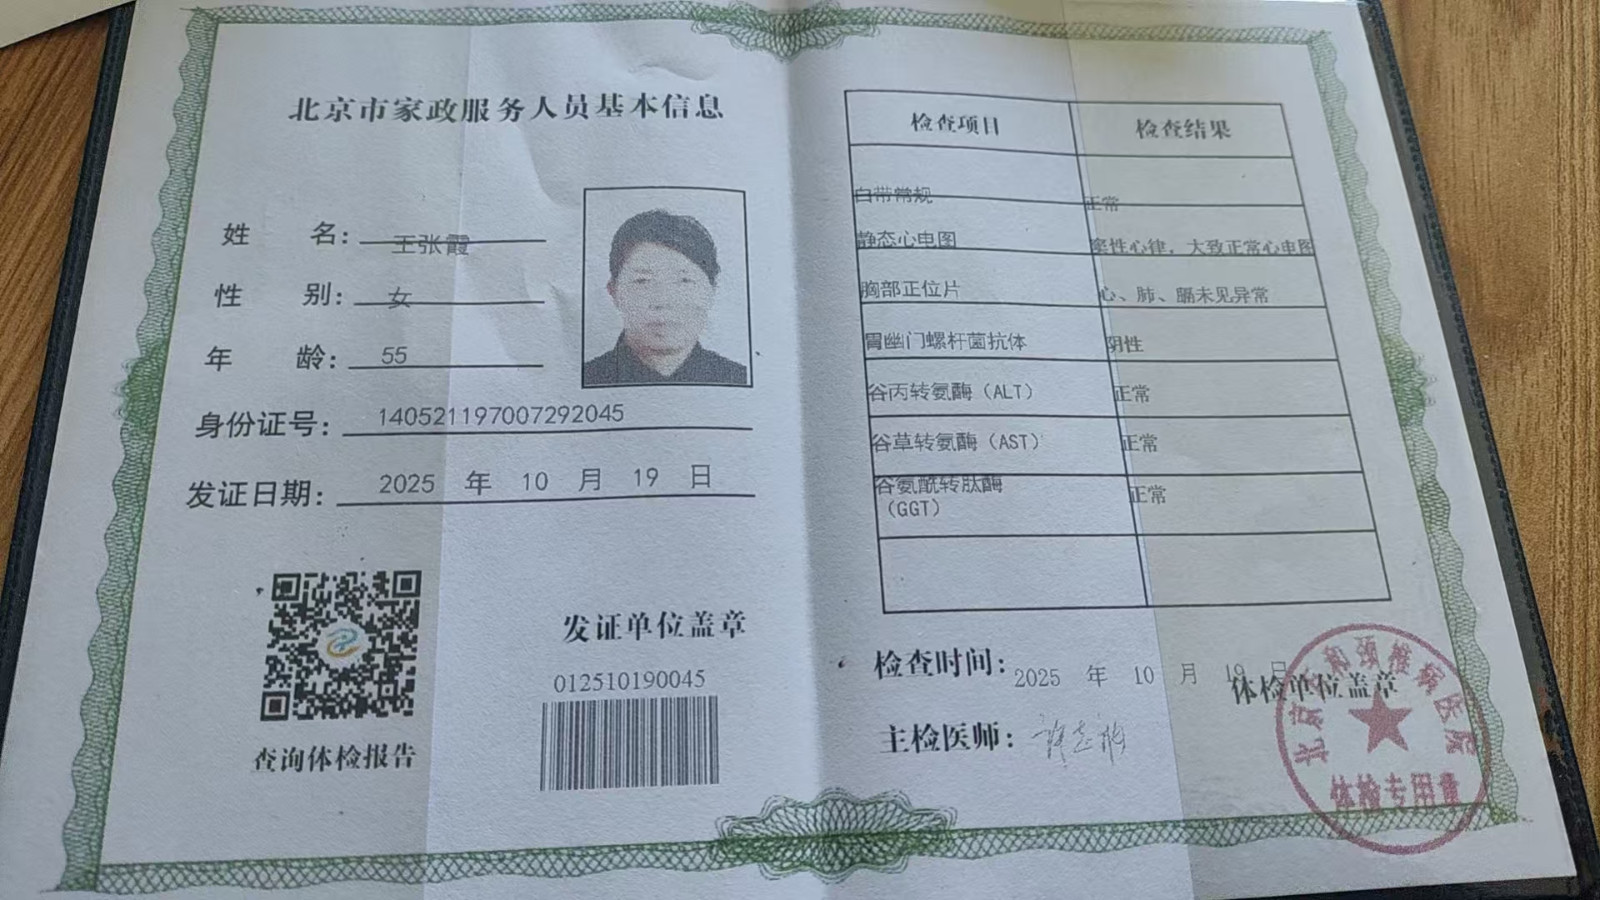 北京市家政服务人员基本信息
姓 名: 王张霞
性 别: 女
年 龄: 55
身份证号: 140521197007292045
发证日期: 2025 年 10 月 19 日
查询体检报告
发证单位盖章
012510190045
检查项目 检查结果
白带常规 正常
静态心电图 窦性心律,大致正常心电图
胸部正位片 心、肺、膈未见异常
胃幽门螺杆菌抗体 阴性
谷丙转氨酶(ALT) 正常
谷草转氨酶(AST) 正常
谷氨酰转肽酶 正常
(GGT)
检查时间: 2025 年 10 月 19 日
体检单位盖章
主检医师:
颈椎病医院
体检专用章